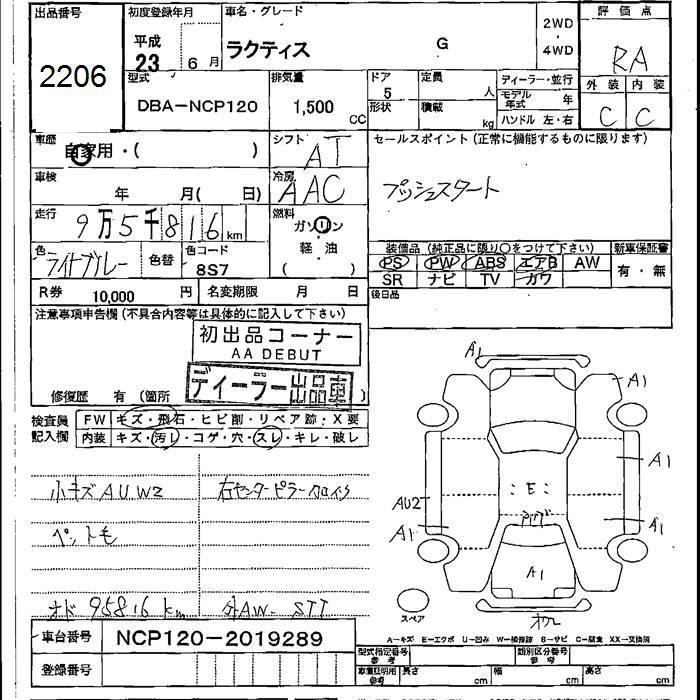 出品番号
2206
初度登録年月
平成
23
6 月
車名・グレード
ラクティス
G
2WD
・
4WD
評価点
RA
外装 内装
C C
型式
DBA-NCP120
排気量
1,500
CC
ドア
5
形状
定員
人
積載
kg
ディーラー・並行
モデル
年式
年
ハンドル 左・右
車歴
自家用・( )
シフト
AT
セールスポイント (正常に機能するものに限ります)
プッシュスタート
車検
年 月( 日)
冷房
AAC
走行
9万5千816 km
燃料
ガソリン
軽・油
( )
色
ライトブルー
色替
色コード
8S7
装備品 (純正品に限り○をつけて下さい)
PS PW ABS エアB AW
SR ナビ TV カワ
新車保証書
有・無
R券 10,000 円
名変期限 月 日
後日品
注意事項申告欄 (不具合内容等は具体的に記入して下さい)
初出品コーナー
AA DEBUT
ディーラー出品車
修復歴 有 (箇所 )
検査員
記入欄
FW キズ・飛石・ヒビ削・リペア跡・X要
内装 キズ・汚レ・コゲ・穴・スレ・キレ・破レ
小キズAUW2
右センターピラー
ペットモ
オド 95816 km
外AW、STT
A1
A1
A1
AU2
A1
A1
:E:
A1
スペア
A-キズ E-エクボ U-凹み W-補修跡 S-サビ C-腐食 XX-交換済
車台番号
NCP120-2019289
登録番号
型式指定番号
参考
類別区分番号
参考
車庫証明用
参考
長さ
cm
幅
cm
高さ
cm